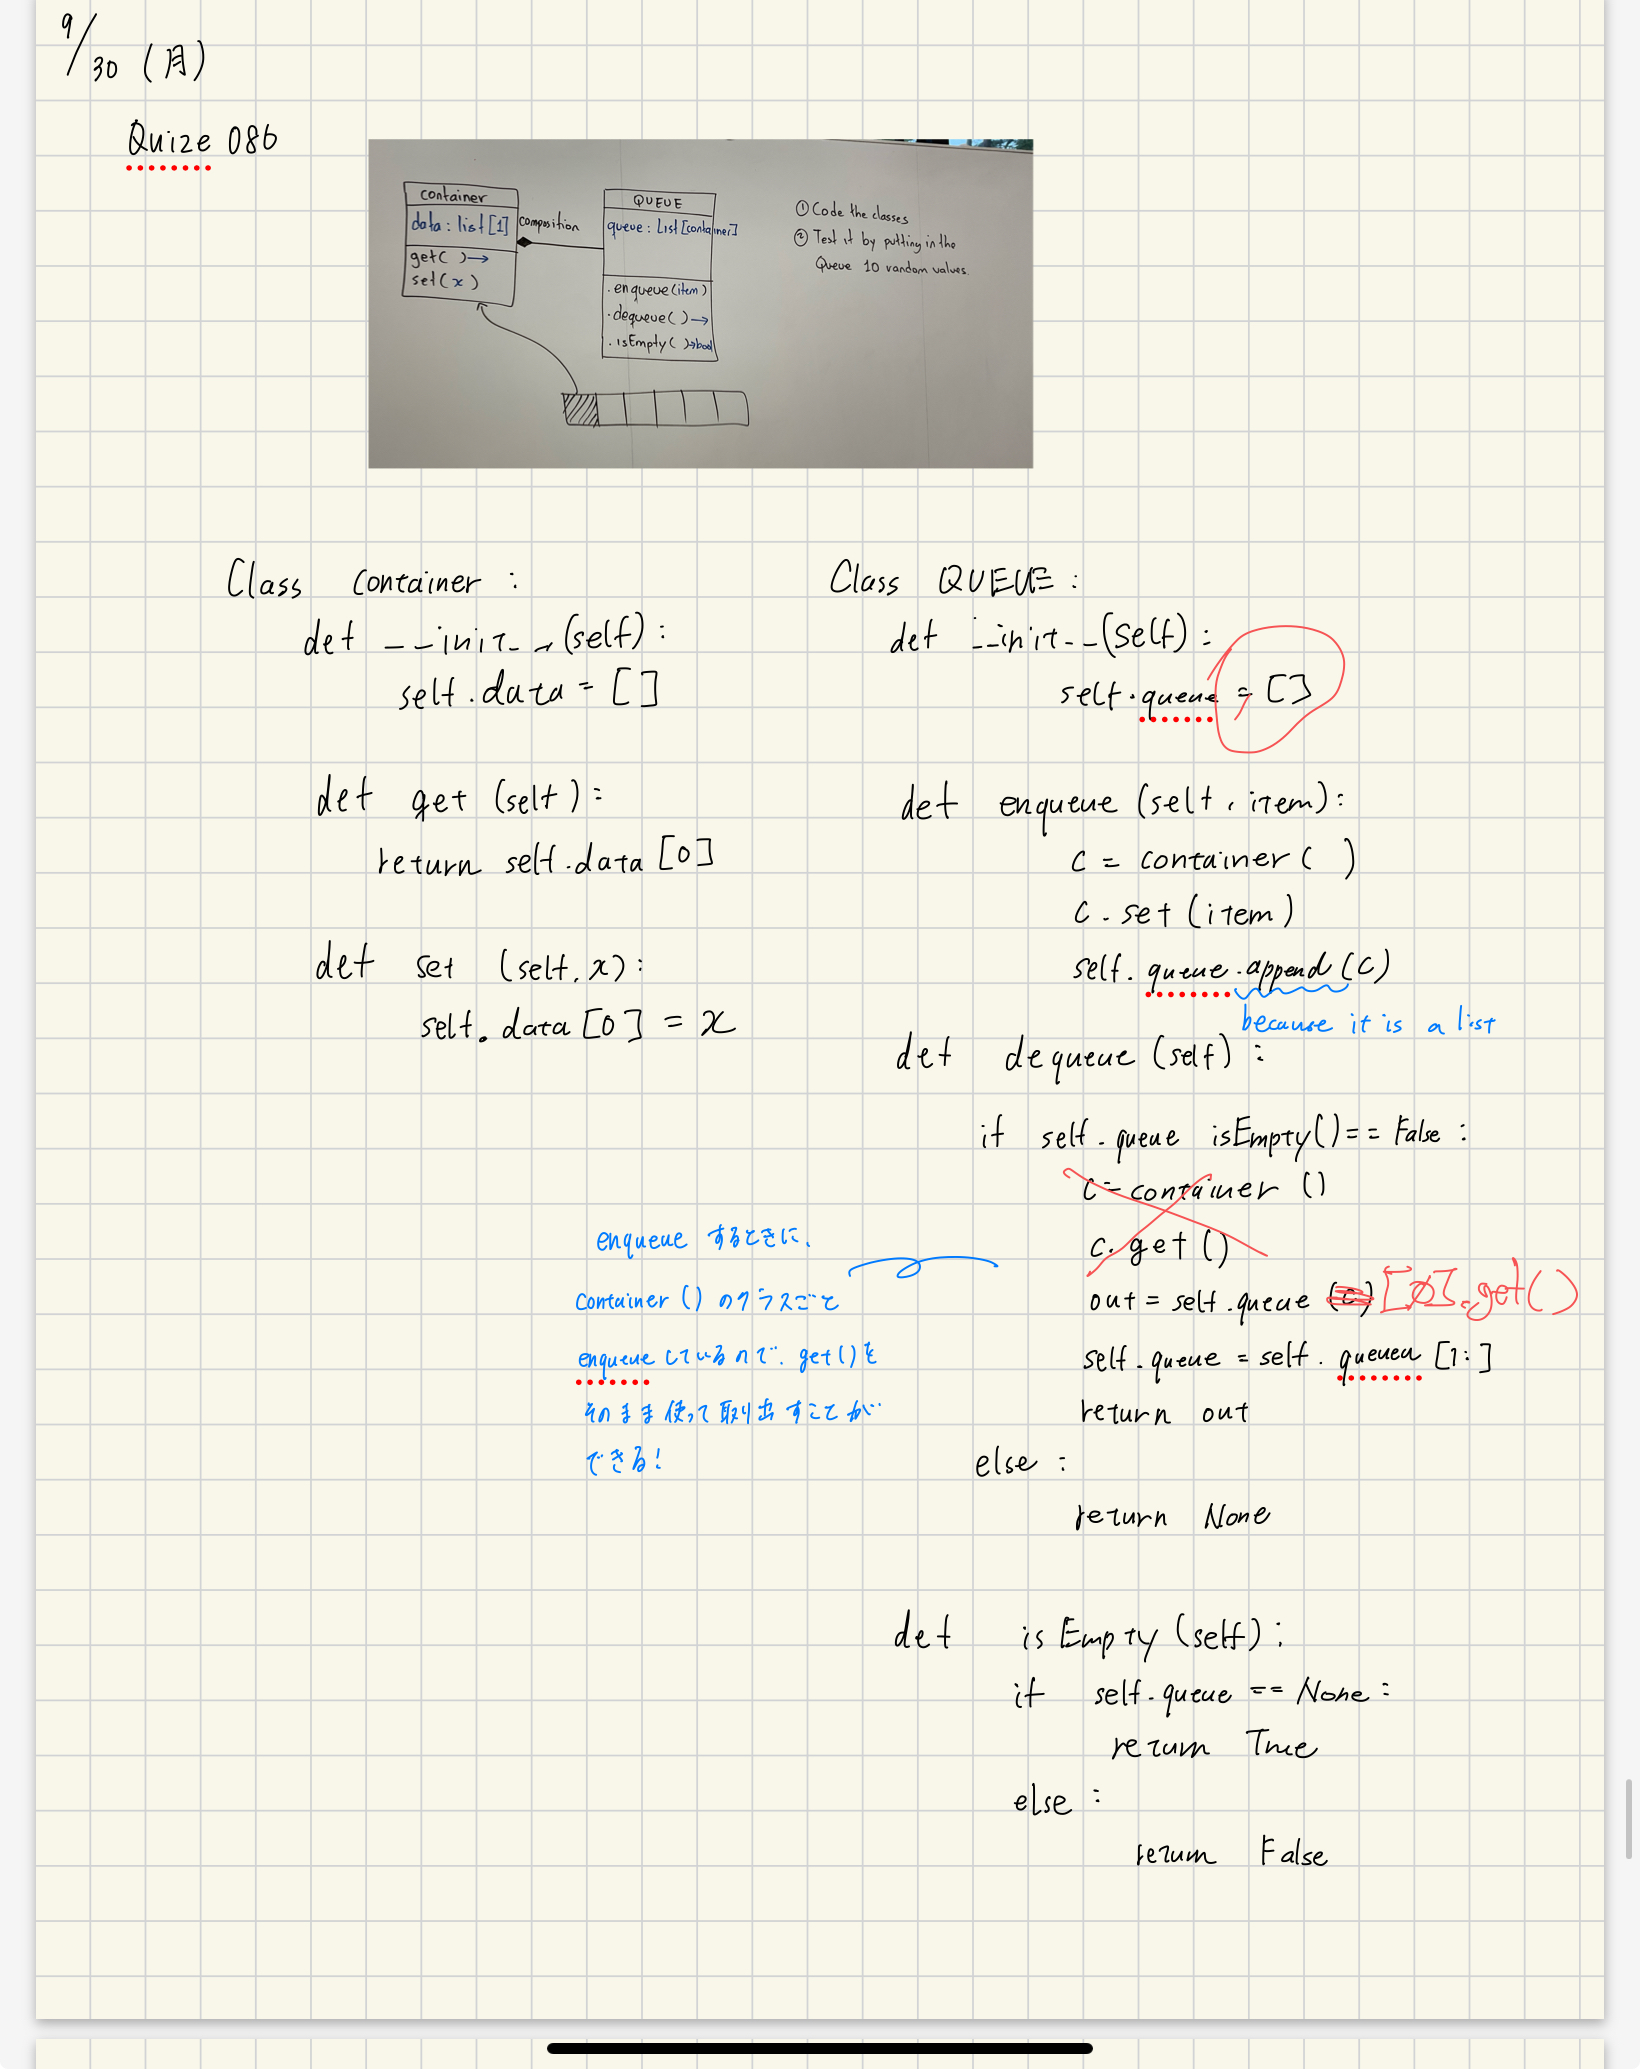 9/30 (月)
Quize 086
container
data: list[1]
get( )→
set(x)
composition
QUEUE
queue: List[container]
.enqueue(item)
.dequeue( )→
.isEmpty( )→bool
① Code the classes
② Test it by putting in the
Queue 10 random values.
Class container :
def __init__(self):
self.data = []
def get (self):
return self.data[0]
def set (self, x):
self.data[0] = x
Class QUEUE :
def __init__(self):
self.queue = []
def enqueue (self, item):
c = container( )
c.set(item)
self.queue.append(c)
because it is a list
def dequeue (self):
if self.queue isEmpty()== False:
c = container ()
c.get()
out = self.queue (c) [0].get()
self.queue = self.queueu [1:]
return out
else :
return None
enqueue するときに、
Container () のクラスごと
enqueue しているので、get()を
そのまま使って取り出すことが
できる!
def isEmpty (self):
if self.queue == None:
return True
else :
return False